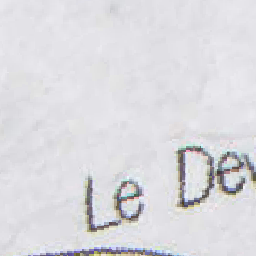 Le Dev